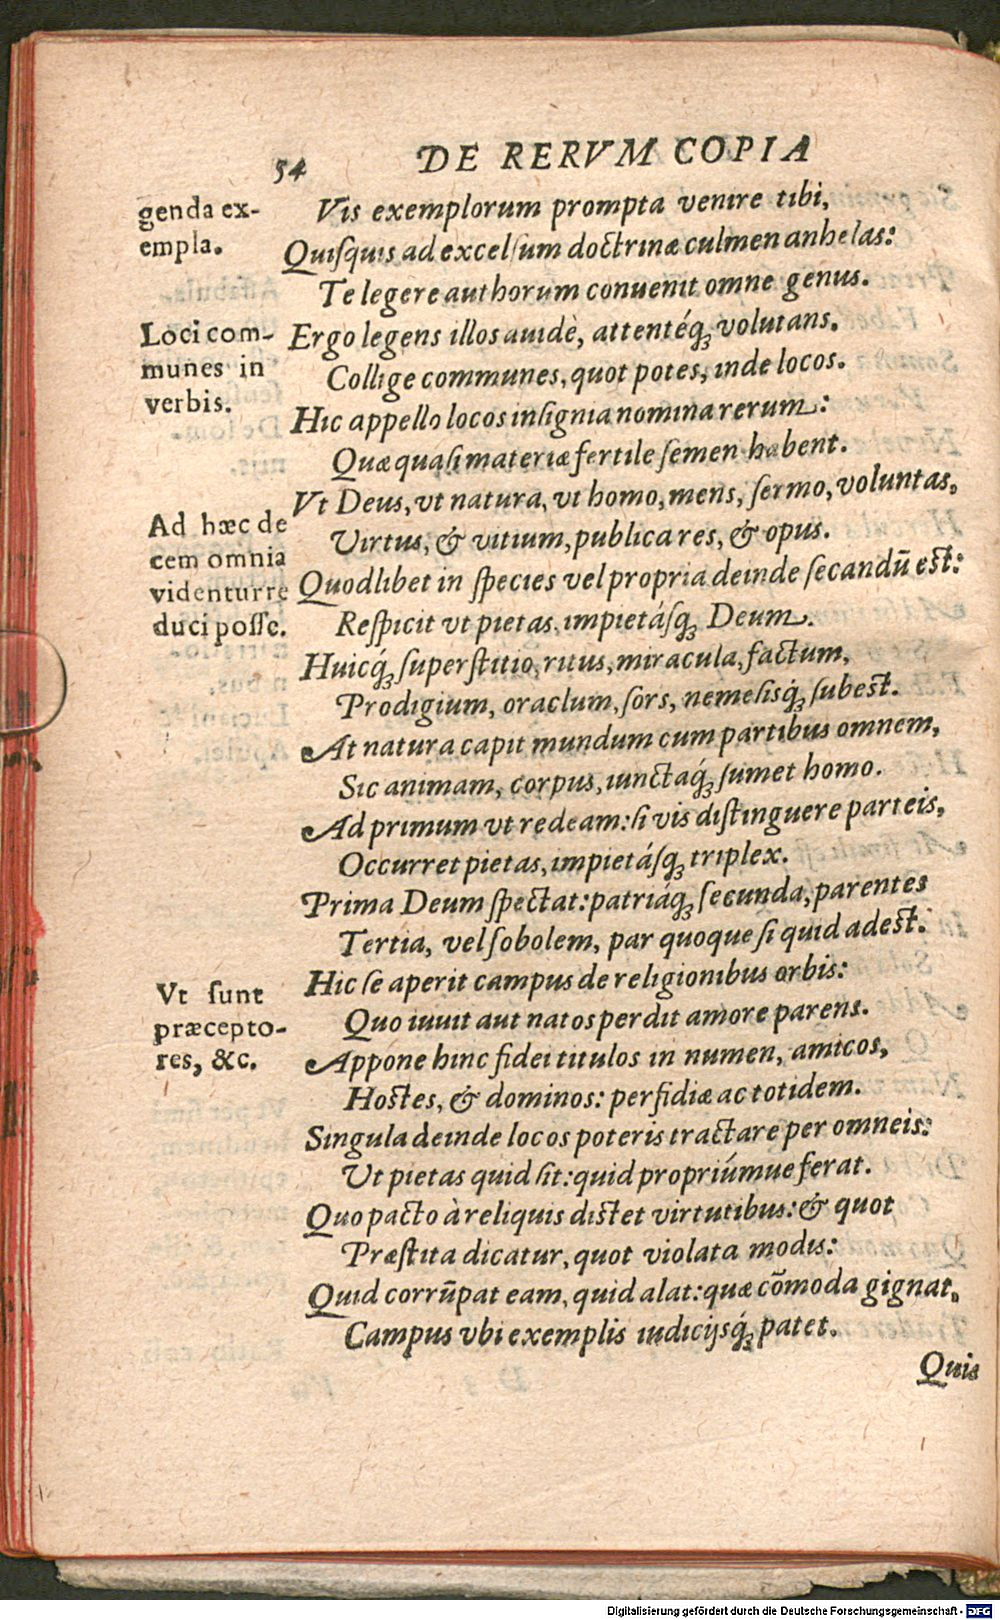 54 DE RERVM COPIA
genda ex-
empla.
Vis exemplorum prompta venire tibi,
Quiſquis ad excelſum doctrinæ culmen anhelas:
Te legere authorum conuenit omne genus.
Loci com-
munes in
verbis.
Ergo legens illos auidè, attentéq́ꝫ volutans.
Collige communes, quot potes, inde locos.
Hic appello locos inſignia nomina rerum:
Quæ quaſi materiæ fertile ſemen habent.
Vt Deus, vt natura, vt homo, mens, ſermo, voluntas,
Ad hæc de
cem omnia
videntur re
duci poſſe.
Virtus, & vitium, publica res, & opus.
Quodlibet in ſpecies vel propria deinde ſecandū eſt:
Reſpicit vt pietas, impietáſq́ꝫ Deum.
Huicq́ꝫ ſuperſtitio, ritus, miracula, factum,
Prodigium, oraclum, ſors, nemeſisq́ꝫ ſubeſt.
At natura capit mundum cum partibus omnem,
Sic animam, corpus, iunctaq́ꝫ ſumet homo.
Ad primum vt redeam: ſi vis diſtinguere parteis,
Occurret pietas, impietáſq́ꝫ triplex.
Prima Deum ſpectat: patriáq́ꝫ ſecunda, parentes
Tertia, vel ſobolem, par quoque ſi quid adeſt.
Vt ſunt
præcepto-
res, &c.
Hic ſe aperit campus de religionibus orbis:
Quo iuuit aut natos perdit amore parens.
Appone hinc fidei titulos in numen, amicos,
Hoſtes, & dominos: perfidiæ ac totidem.
Singula deinde locos poteris tractare per omneis:
Ut pietas quid ſit: quid propriúmue ferat.
Quo pacto à reliquis diſtet virtutibus: & quot
Præſtita dicatur, quot violata modis:
Quid corrūpat eam, quid alat: quæ cōmoda gignat,
Campus vbi exemplis iudicijsq́ꝫ patet.
Quis
Digitalisierung gefördert durch die Deutsche Forschungsgemeinschaft - DFG